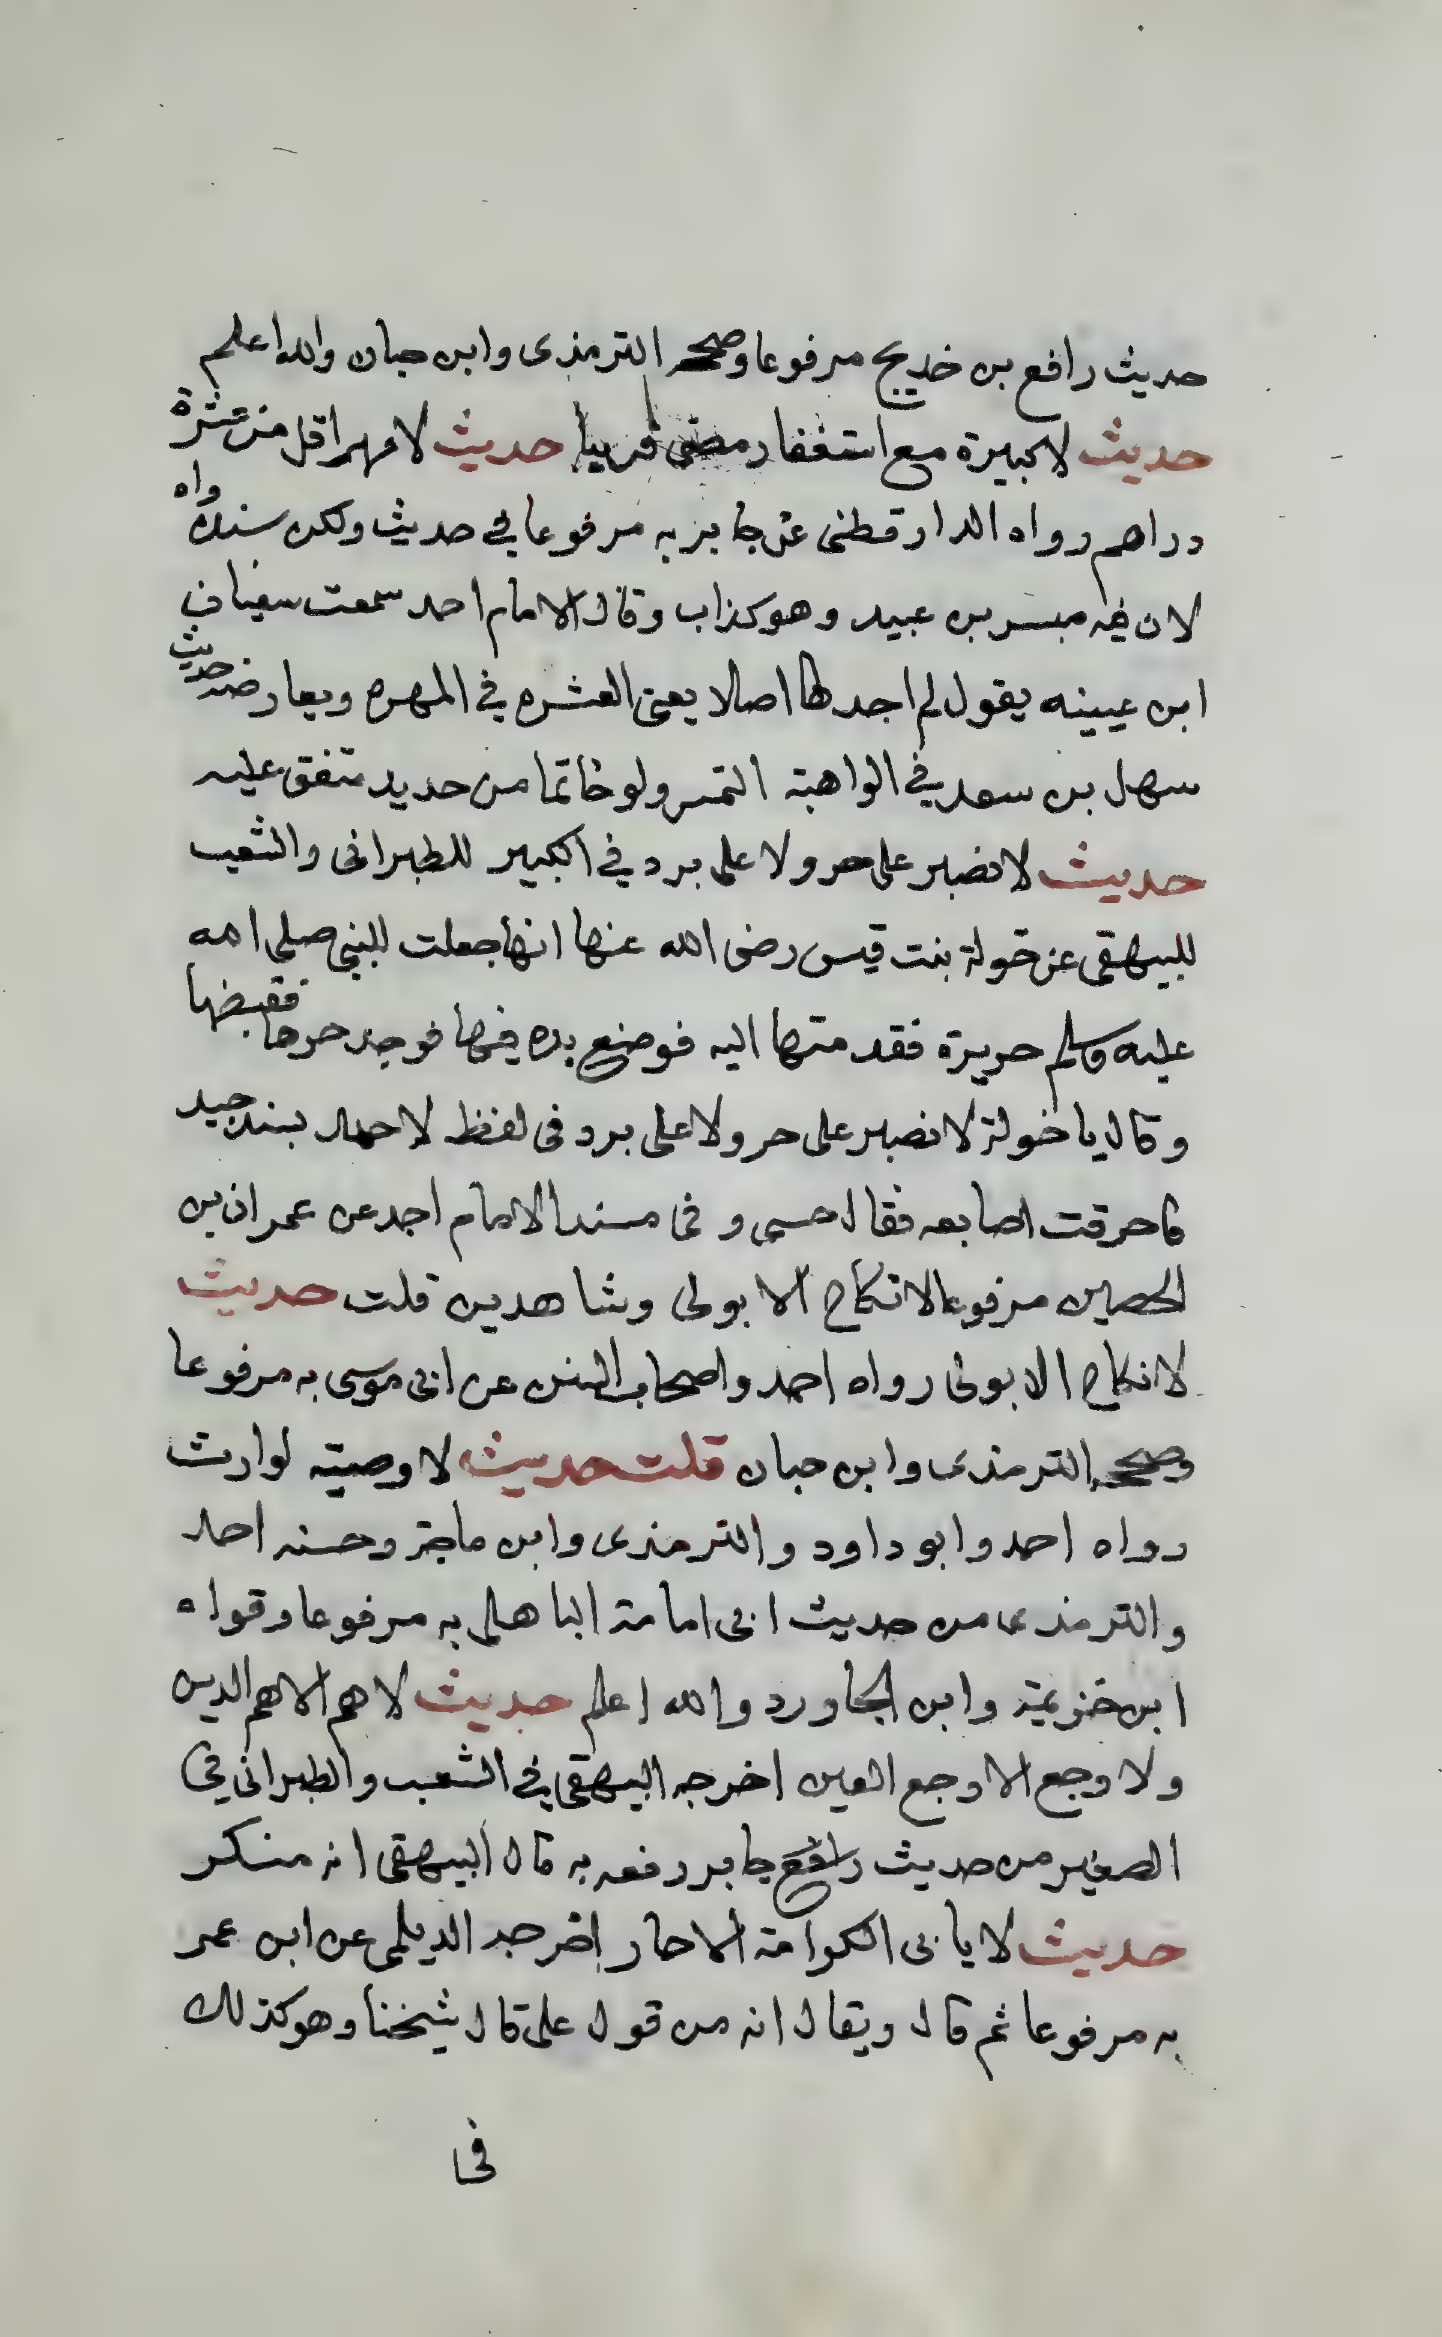 حديث رافع بن خديج مرفوعا وصححه الترمذى وابن حبان والله اعلم
حديث لا كبيرة مع استغفار مضى قريبا حديث لا مهر اقل من عشرة
دراهم رواه الدارقطنى عن جابر به مرفوعا في حديث ولكن سنده واه
لان فيه مبسر بن عبيد وهو كذاب وقال الامام احمد سمعت سفيان
ابن عيينه يقول لم اجد لها اصلا يعنى العشره في المهره ويعارضه حديث
سهل بن سعد في الواهبة التمس ولو خاتما من حديد متفق عليه
حديث لا نصبر على حر ولا على برد في الكبير للطبرانى والشعب
للبيهقى عن خولة بنت قيس رضى الله عنها انها جعلت للنبي صلى الله
عليه وسلم حريرة فقدمتها اليه فوضع يده فيها فوجد حرها فقبضها
وقال يا خولة لا نصبر على حر ولا على برد فى لفظ لاحمد بسند جيد
فاحرقت اصابعه فقال حسى و فى مسند الامام احمد عن عمران بن
الحصين مرفوعا لا نكاح الا بولى وشاهدين قلت حديث
لا نكاح الا بولى رواه احمد واصحاب السنن عن ابى موسى به مرفوعا
وصححه الترمذى وابن حبان قلت حديث لا وصية لوارث
رواه احمد وابو داود والترمذى وابن ماجة وحسنه احمد
والترمذى من حديث ابى امامة الباهلى به مرفوعا وقواه
ابن خزيمة وابن الجاورد والله اعلم حديث لا هم الا هم الدين
ولا وجع الا وجع العين اخرجه البيهقى في الشعب والطبرانى في
الصغير من حديث جابر رفعه به قال البيهقى انه منكر
حديث لا يابى الكرامة الا حمار اخرجه الديلمى عن ابن عمر
به مرفوعا ثم قال ويقال انه من قول على قال شيخنا وهو كذلك
فى